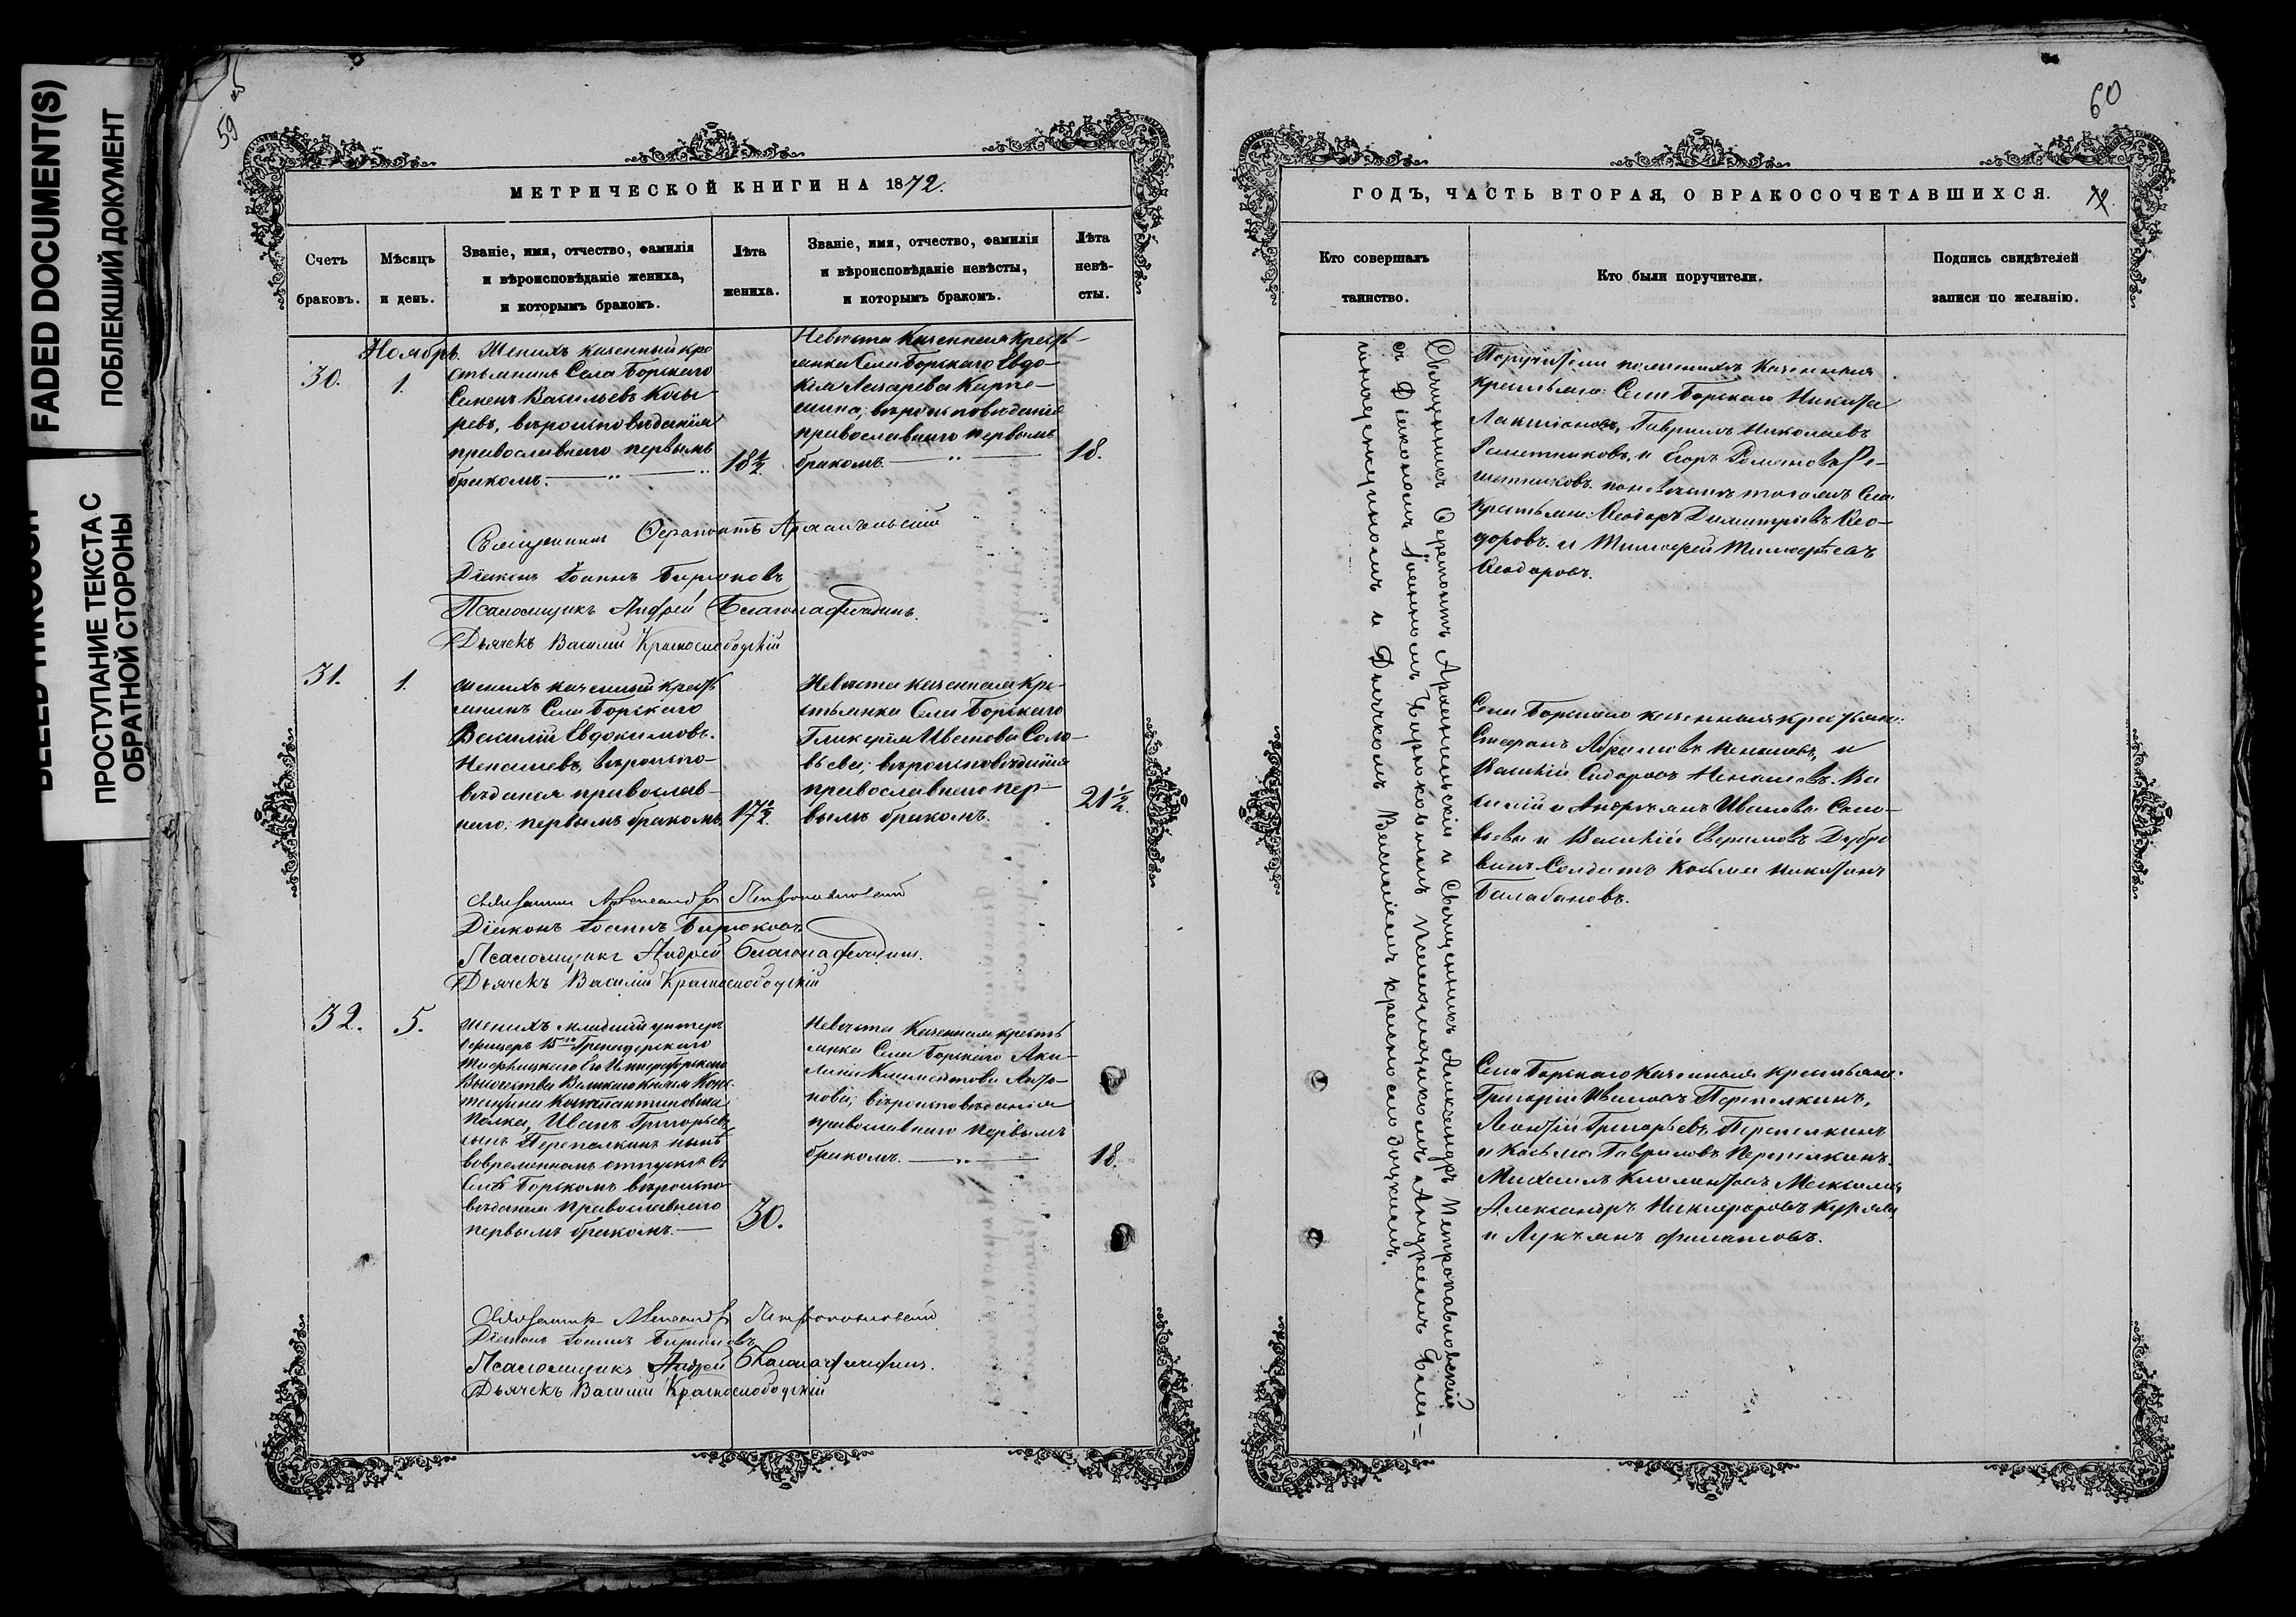 FADED DOCUMENT(S)
ПОБЛЕКШИЙ ДОКУМЕНТ
ПРОСТУПАНИЕ ТЕКСТА С
ОБРАТНОЙ СТОРОНЫ
59
МЕТРИЧЕСКОЙ КНИГИ НА 1872.
Счетъ
браковъ.
Мѣсяцъ
и день.
Званіе, имя, отчество, фамилія
и вѣроисповѣданіе жениха,
и которымъ бракомъ.
Лѣта
жениха.
Званіе, имя, отчество, фамилія
и вѣроисповѣданіе невѣсты,
и которымъ бракомъ.
Лѣта
невѣ-
сты.
30.
Ноябрь
1.
Женихъ казенный кре
стьянинъ Села Борскаго
Семенъ Васильевъ Козы
ревъ, вѣроисповѣданія
православнаго первымъ
бракомъ.
18½
Невѣста Казенная кресть-
янка Села Борскаго Евдо-
кія Лазарева Карпе-
шина, вѣроисповѣданія
православнаго первымъ
бракомъ.
18.
Священникъ Ферапонтъ Архангельскій
Діаконъ Іоаннъ Бирюковъ
Псаломщикъ Андрей Благонадеждинъ.
Дьячекъ Василій Краснослободскій
31.
1.
Женихъ казенный кресть
янинъ Села Борскаго
Василій Евдокимовъ
Ненашевъ, вѣроиспо-
вѣданія православ-
наго, первымъ бракомъ
17½.
Невѣста казенная кре-
стьянка Села Борскаго
Гликерія Иванова Соло-
вьева, вѣроисповѣданія
православнаго пер-
вымъ бракомъ.
21½.
Священникъ Александръ Петропавловскій
Діаконъ Іоаннъ Бирюковъ
Псаломщикъ Андрей Благонадеждинъ.
Дьячекъ Василій Краснослободскій
32.
5.
Женихъ младшій унтеръ
офицеръ 15го Гренадерскаго
Тифлисскаго Его Императорскаго
Высочества Великаго Князя Конс
тантина Константиновича
Полка, Иванъ Григорьевъ
сынъ Перепелкинъ нынѣ
вовременномъ отпуску въ
Селѣ Борскомъ вѣроиспо-
вѣданія православнаго
первымъ бракомъ.
30.
Невѣста Казенная кресть
янка Села Борскаго Аки-
лина Климентова Анто-
нова, вѣроисповѣданія
православнаго первымъ
бракомъ.
18.
Священникъ Александръ Петропавловскій
Діаконъ Іоаннъ Бирюковъ
Псаломщикъ Андрей Благонадеждинъ.
Дьячекъ Василій Краснослободскій
60
ГОДЪ, ЧАСТЬ ВТОРАЯ, О БРАКОСОЧЕТАВШИХСЯ.
Кто совершалъ
таинство.
Кто были поручители.
Подпись свидѣтелей
записи по желанію.
Священникъ Ферапонтъ Архангельскій и Священникъ Александръ Петропавловскій
съ Діакономъ Іоанномъ Бирюковымъ Псаломщикомъ Андреемъ Благо-
надеждинымъ и Дьячкомъ Василіемъ Краснослободскимъ.
Поручители поженихѣ Казенныя
крестьяне Села Борскаго Никита
Лактіоновъ, Гавріилъ Николаевъ
Решетниковъ, и Егоръ Ре-
шетниковъ. поневѣстѣ тогожъ Села
Крестьяне Ѳеодоръ Димитріевъ Ѳео-
доровъ. и Тимофей Тимофеевъ
Ѳеодоровъ.
Села Борскаго казенныя крестьяне:
Стефанъ Абрамовъ Ненашевъ, и
Василій Сидоровъ Ненашевъ. Ва
силій и Андреянъ Ивановы Соло-
вьевы и Василій Дубро
винъ Солдатъ Козьма Никитинъ
Балабановъ.
Села Борскаго Казенныя крестьяне:
Григорій Ивановъ Перепелкинъ,
Леонтій Григорьевъ Перепелкинъ
и Козьма Гавриловъ Перепелкинъ.
Михаилъ Климентовъ
Александръ Никифоровъ
и Лукьянъ Филатовъ.